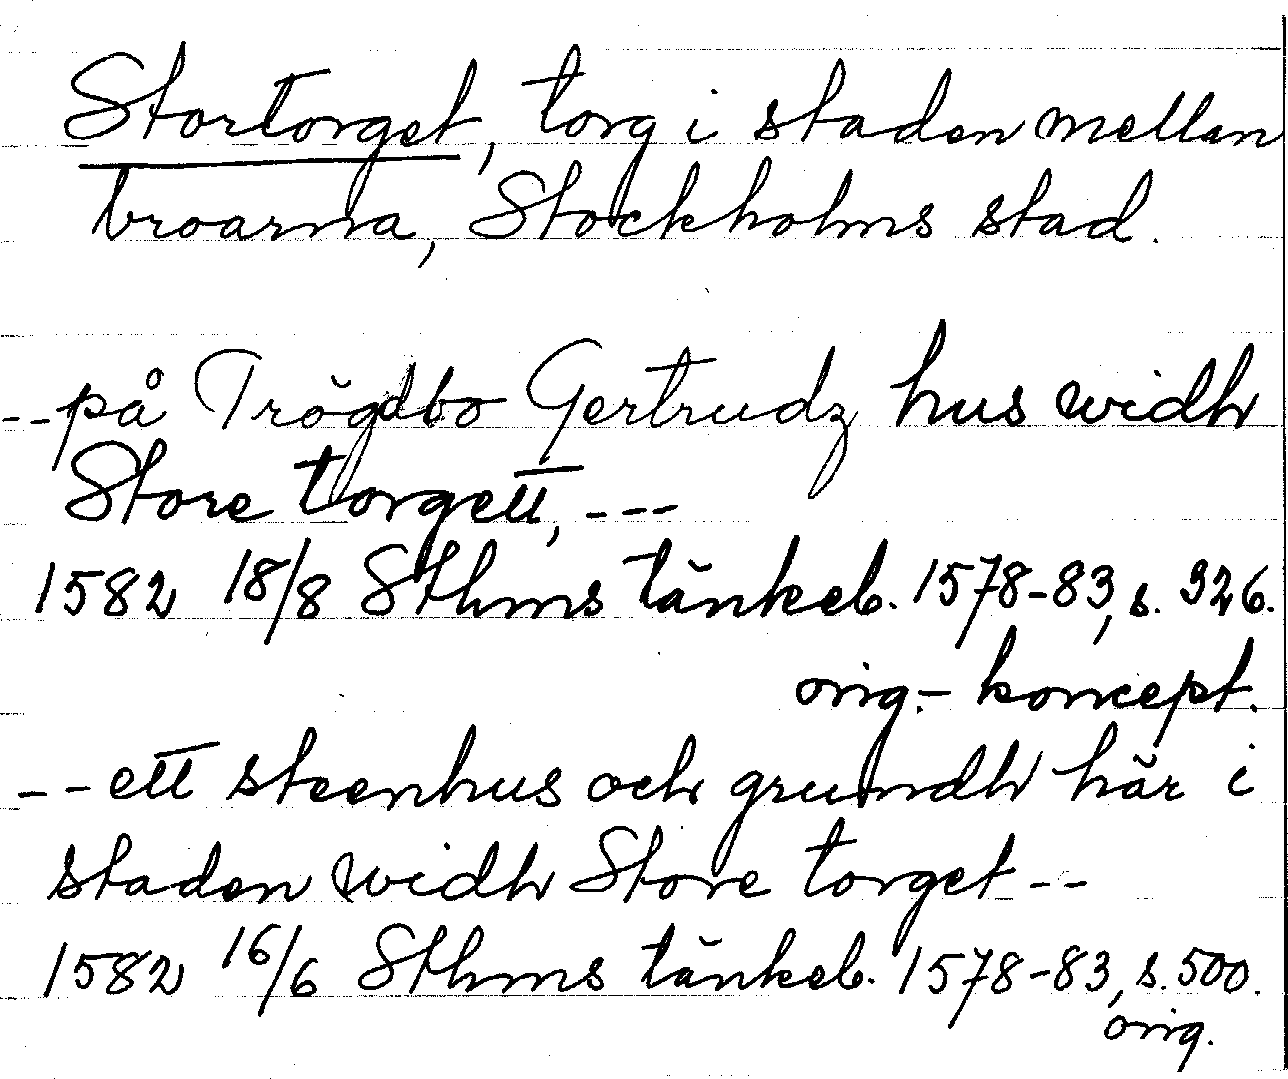 Stortorget, torg i staden mellan
broarna, Stockholms stad.
-- på Trögdbo Gertrudz hus widh
Store torgett, ---
1582 18/8 Sthms tänkeb. 1578-83, s. 326.
orig.- koncept.
-- ett steenhus och grundh här i
staden widh Store torget --
1582 16/6 Sthms tänkeb. 1578-83, s. 500.
orig.